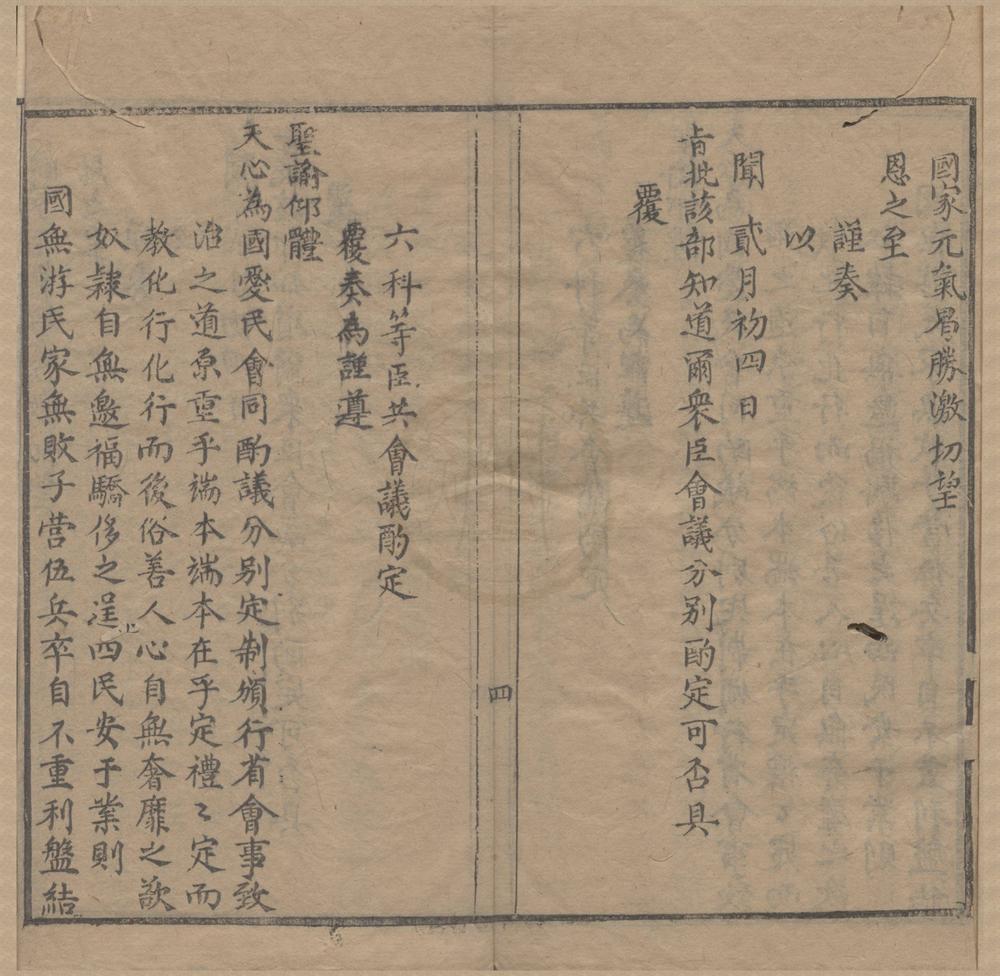 國家元氣曷勝激切望
恩之至
謹奏
以
聞 貳月初四日
旨批該部知道爾衆臣會議分別酌定可否具
覆
四
六科等臣共會議酌定
覆奏為謹遵
聖諭仰體
天心為國愛民會同酌議分別定制頒行省會事致
治之道原重乎端本端本在乎定禮〻定而
教化行化行而後俗善人心自無奢靡之欲
奴隸自無邀福驕侈之逞上四民安于業則
國無游民家無敗子营伍兵卒自不重利盤結